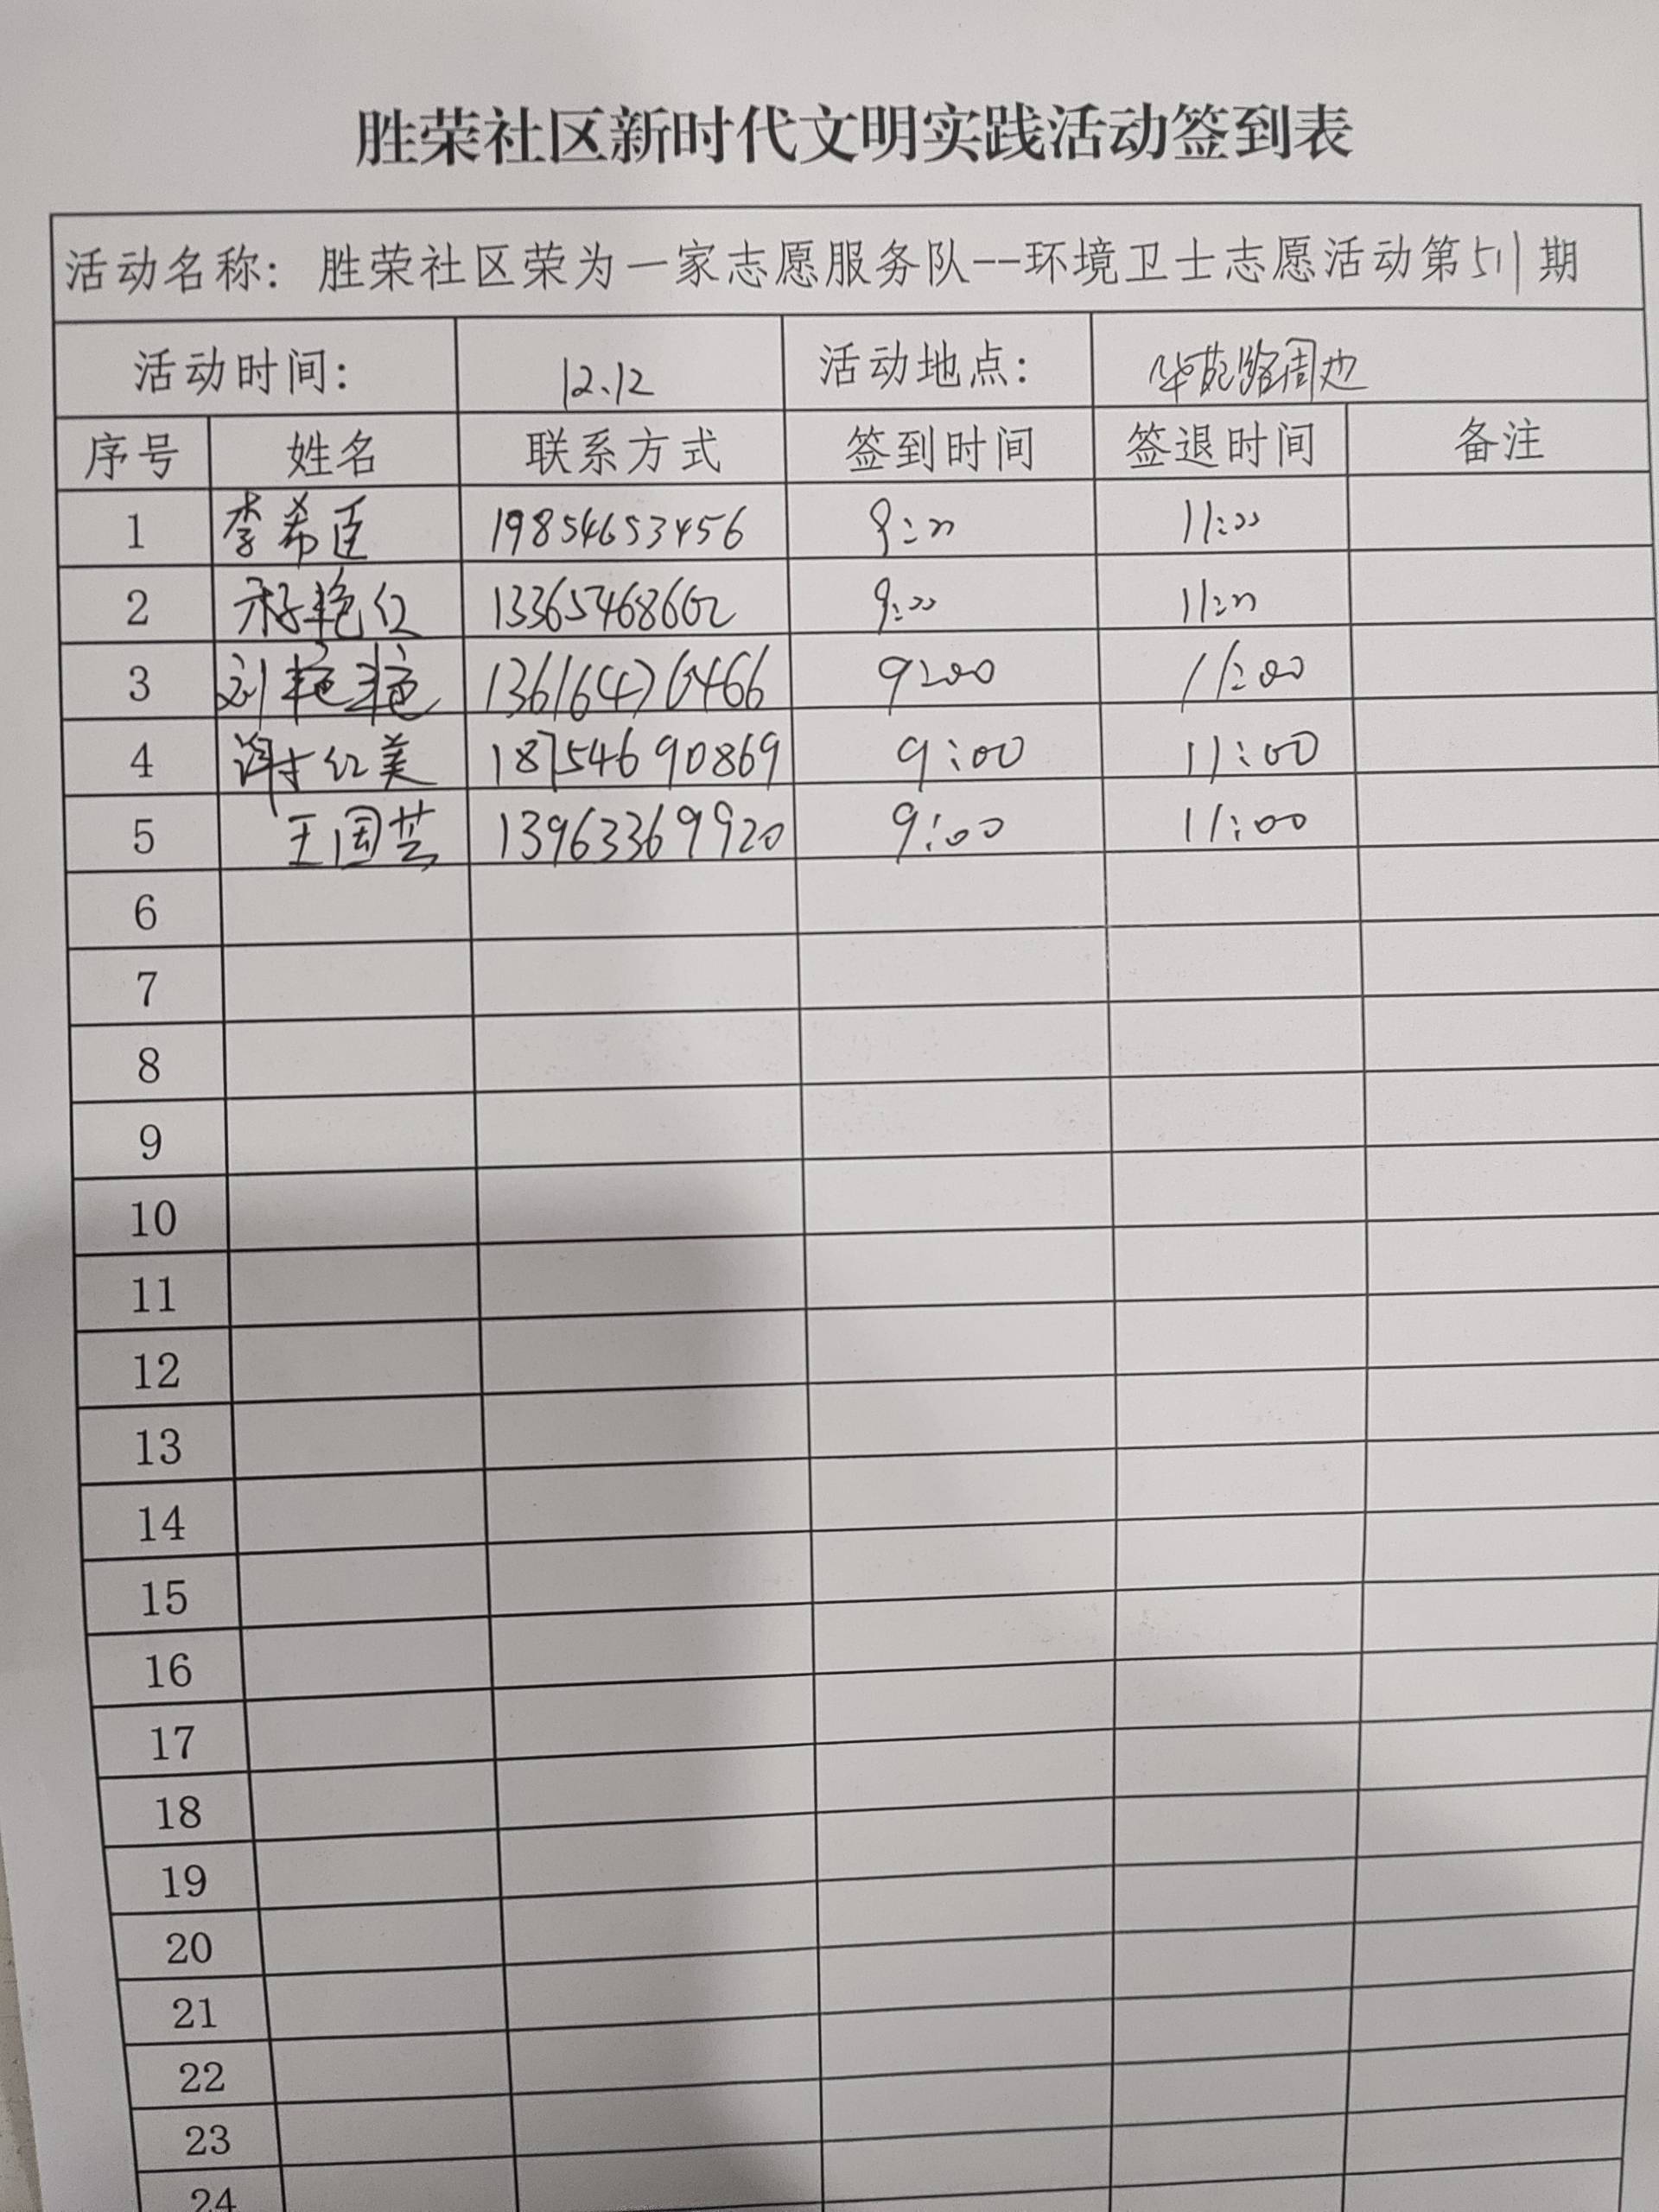 胜荣社区新时代文明实践活动签到表
活动名称: 胜荣社区荣为一家志愿服务队--环境卫士志愿活动第511期
活动时间: 12.12 活动地点: 华苑路周边
序号 姓名 联系方式 签到时间 签退时间 备注
1 李希臣 19854653456 9:00 11:00
2 艳红 13365468602 9:00 11:00
3 刘艳艳 13616476466 9:00 11:00
4 谢红美 18754690869 9:00 11:00
5 王国芸 13963369920 9:00 11:00
6
7
8
9
10
11
12
13
14
15
16
17
18
19
20
21
22
23
24